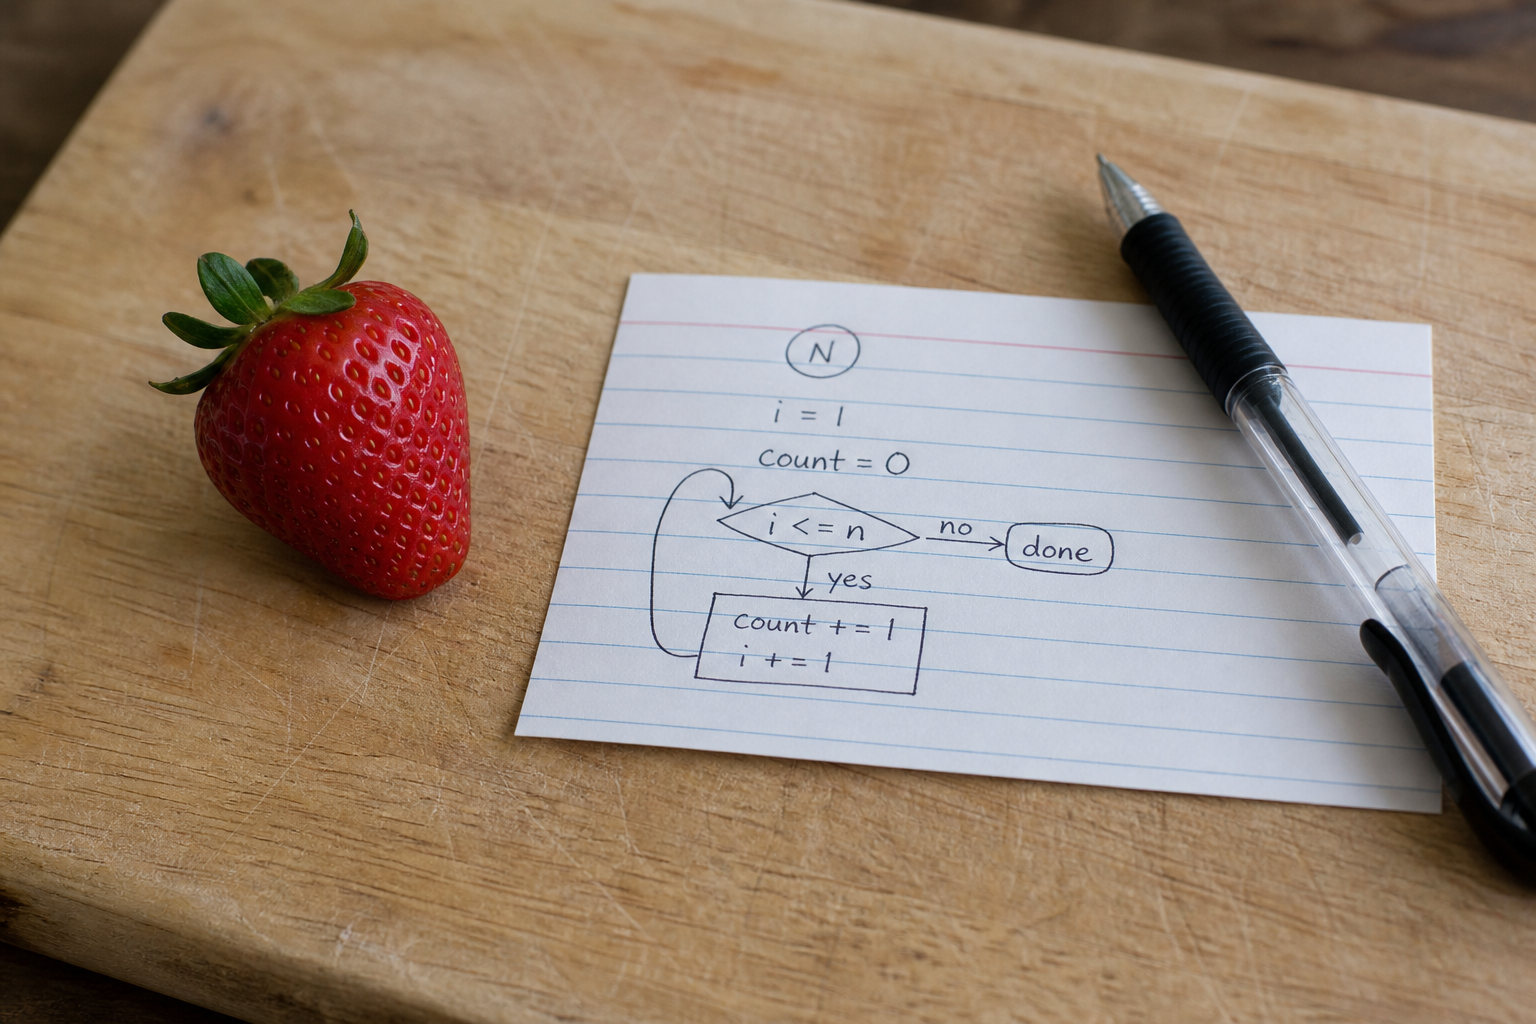 N
i = 1
count = 0
i <= n
no
done
yes
count += 1
i += 1